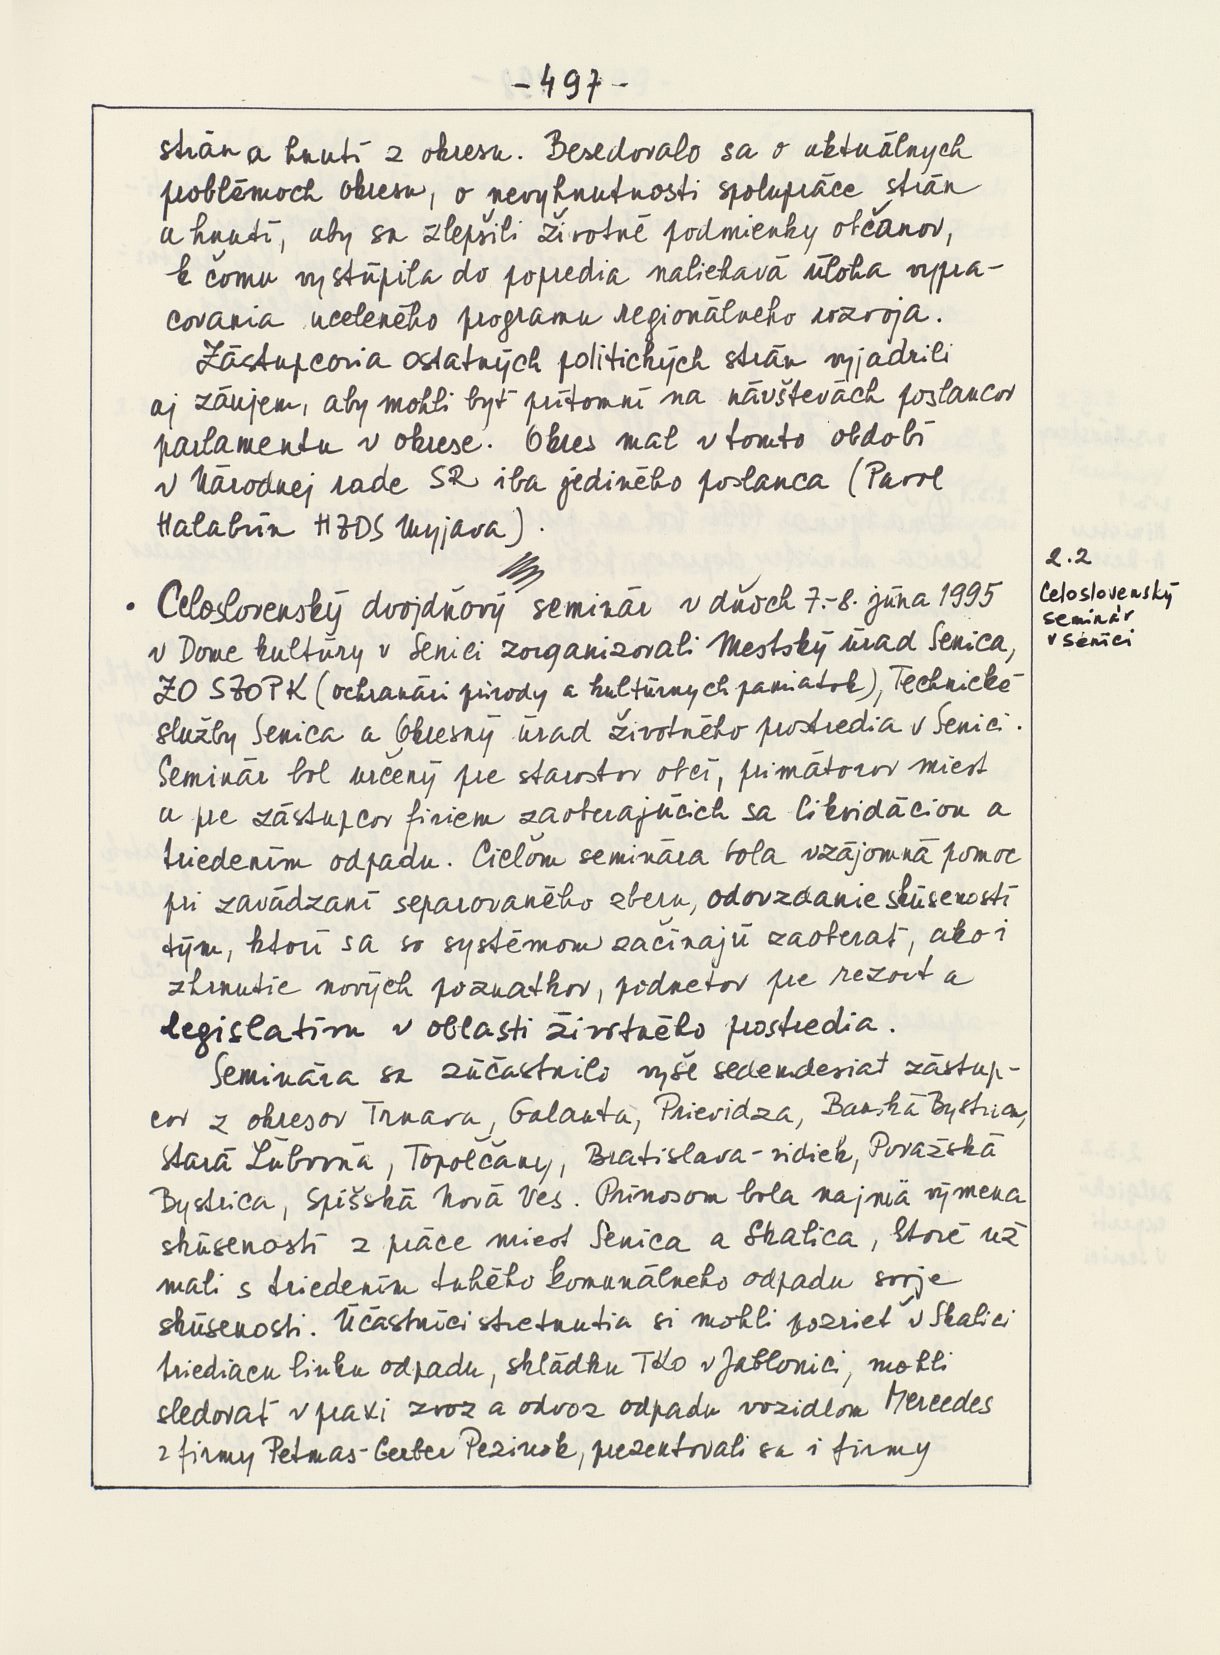 - 497 -
strán a hnutí z okresu. Besedovalo sa o aktuálnych
problémoch okresu, o nevyhnutnosti spolupráce strán
a hnutí, aby sa zlepšili životné podmienky občanov,
k čomu vystúpila do popredia naliehavá úloha vypra-
covania uceleného programu regionálneho rozvoja.
Zástupcovia ostatných politických strán vyjadrili
aj záujem, aby mohli byť prítomní na návštevách poslancov
parlamentu v okrese. Okres mal v tomto období
v Národnej rade SR iba jediného poslanca (Pavol
Halabrín HZDS Myjava).
2.2
Celoslovenský
seminár
v Senici
• Celoslovenský dvojdňový seminár v dňoch 7.-8. júna 1995
v Dome kultúry v Senici zorganizovali Mestský úrad Senica,
ZO SZOPK (ochranári prírody a kultúrnych pamiatok), Technické
služby Senica a Okresný úrad životného prostredia v Senici.
Seminár bol určený pre starostov obcí, primátorov miest
a pre zástupcov firiem zaoberajúcich sa likvidáciou a
triedením odpadu. Cieľom seminára bola vzájomná pomoc
pri zavádzaní separovaného zberu, odovzdanie skúseností
tým, ktorí sa so systémom začínajú zaoberať, ako i
zhrnutie nových poznatkov, podnetov pre rezort a
legislatívu v oblasti životného prostredia.
Seminára sa zúčastnilo vyše sedemdesiat zástup-
cov z okresov Trnava, Galanta, Prievidza, Banská Bystrica,
Stará Ľubovňa, Topoľčany, Bratislava-vidiek, Považská
Bystrica, Spišská Nová Ves. Prínosom bola najmä výmena
skúseností z práce miest Senica a Skalica, ktoré už
mali s triedením tuhého komunálneho odpadu svoje
skúsenosti. Účastníci stretnutia si mohli pozrieť v Skalici
triediacu linku odpadu, skládku TKO v Jablonici, mohli
sledovať v praxi zvoz a odvoz odpadu vozidlom Mercedes
z firmy Petmas-Gerber Pezinok, prezentovali sa i firmy